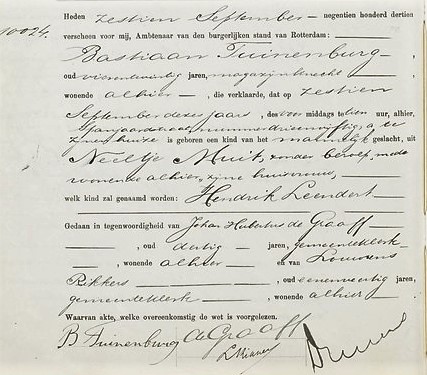 10024.
Heden zestien September negentien honderd dertien
verscheen voor mij, Ambtenaar van den burgerlijken stand van Rotterdam:
Bastiaan Tuinenburg,
oud vierentwintig jaren, magazijnknecht
wonende alhier, die verklaarde, dat op zestien
September dezes jaars, des voor middags te tien uur, alhier,
Spanjaardstraat nummer drieenvijftig, a te
zijnen huize is geboren een kind van het mannelijk geslacht, uit
Neeltje Muit, zonder beroep, mede
wonende alhier, zijne huisvrouw,
welk kind zal genaamd worden: Hendrik Leendert
Gedaan in tegenwoordigheid van Johan Hubertus de Graaff
, oud dertig jaren, gemeenteklerk
, wonende alhier en van Louwens
Rikkers, oud eenenveertig jaren,
gemeenteklerk, wonende alhier
Waarvan akte, welke overeenkomstig de wet is voorgelezen.
B Tuinenburg de Graaff